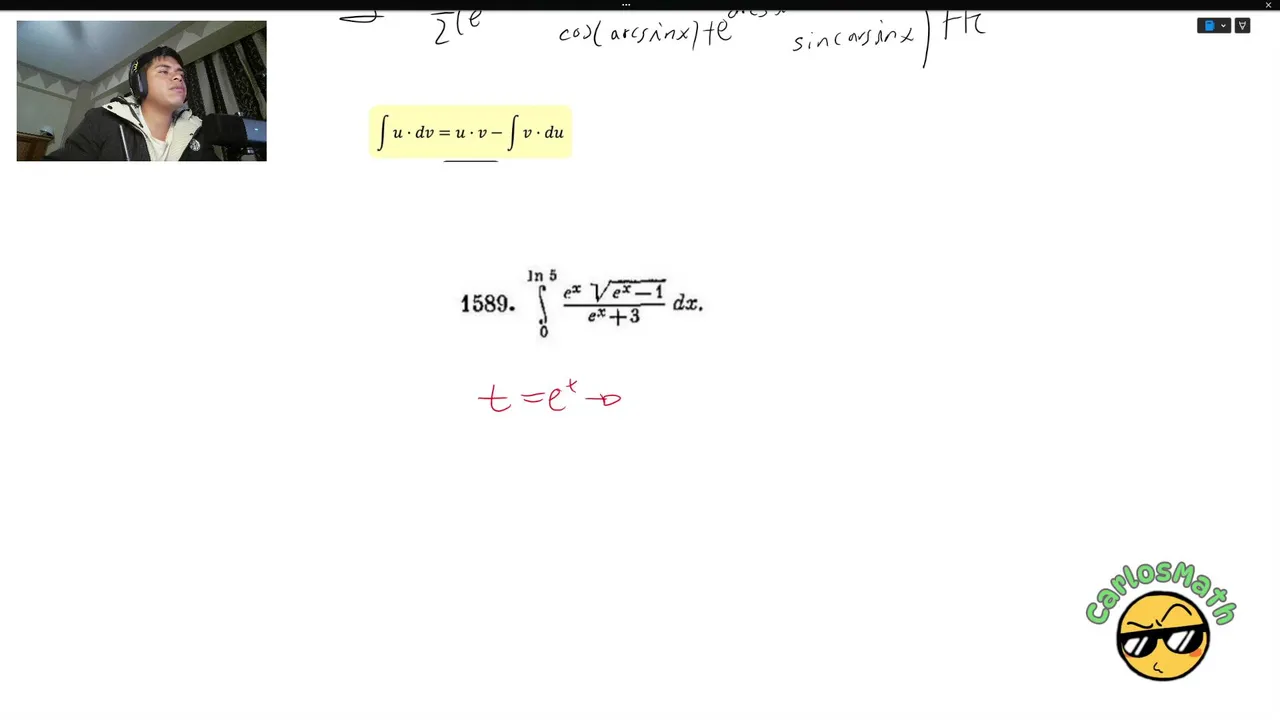 1/2 (e cos(arcsinx)+e^arcs sin(arcsinx)) +C
∫ u · dv = u · v − ∫ v · du
1589. ∫_0^{ln 5} \frac{e^x \sqrt{e^x − 1}}{e^x + 3} dx.
t = e^t →
CarlosMath